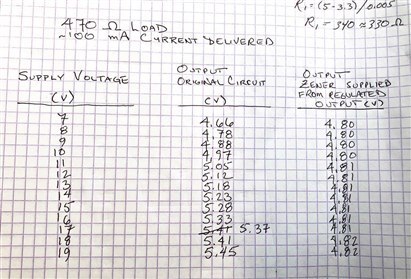 R₁ = (5-3.3)/0.005
R₁ = 340 ≈ 330 Ω
470 Ω LOAD
~100 mA CURRENT DELIVERED
SUPPLY VOLTAGE (V) OUTPUT ORIGINAL CIRCUIT (V) OUTPUT ZENER SUPPLIED FROM REGULATED OUTPUT (V)
7 4.66 4.80
8 4.78 4.80
9 4.88 4.80
10 4.97 4.80
11 5.05 4.81
12 5.12 4.81
13 5.18 4.81
14 5.23 4.81
15 5.28 4.81
16 5.33 4.81
17 5.41 5.37 4.81
18 5.41 4.82
19 5.45 4.82